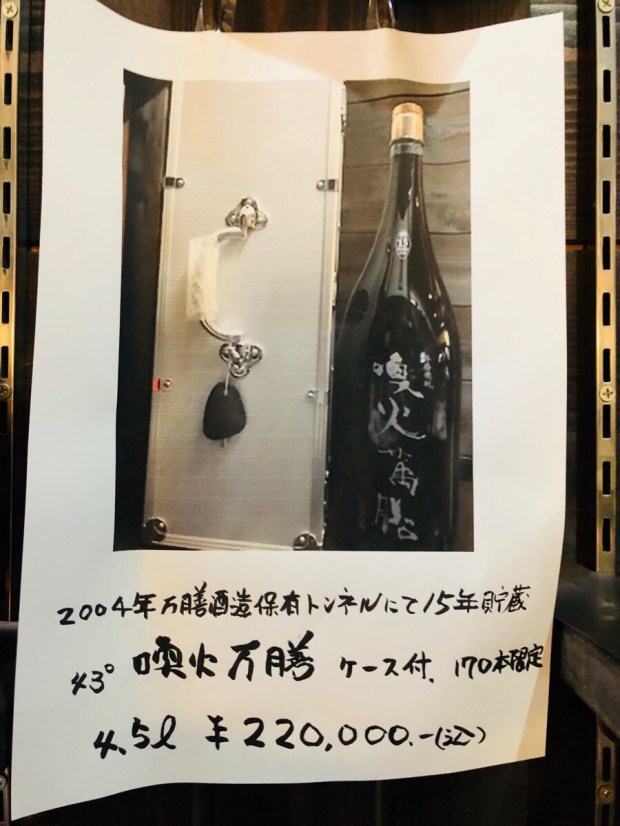 喚火萬膳
2004年万膳酒造保有トンネルにて15年貯蔵
43° 喚火万膳 ケース付、170本限定
4.5l ¥220,000.-(込)